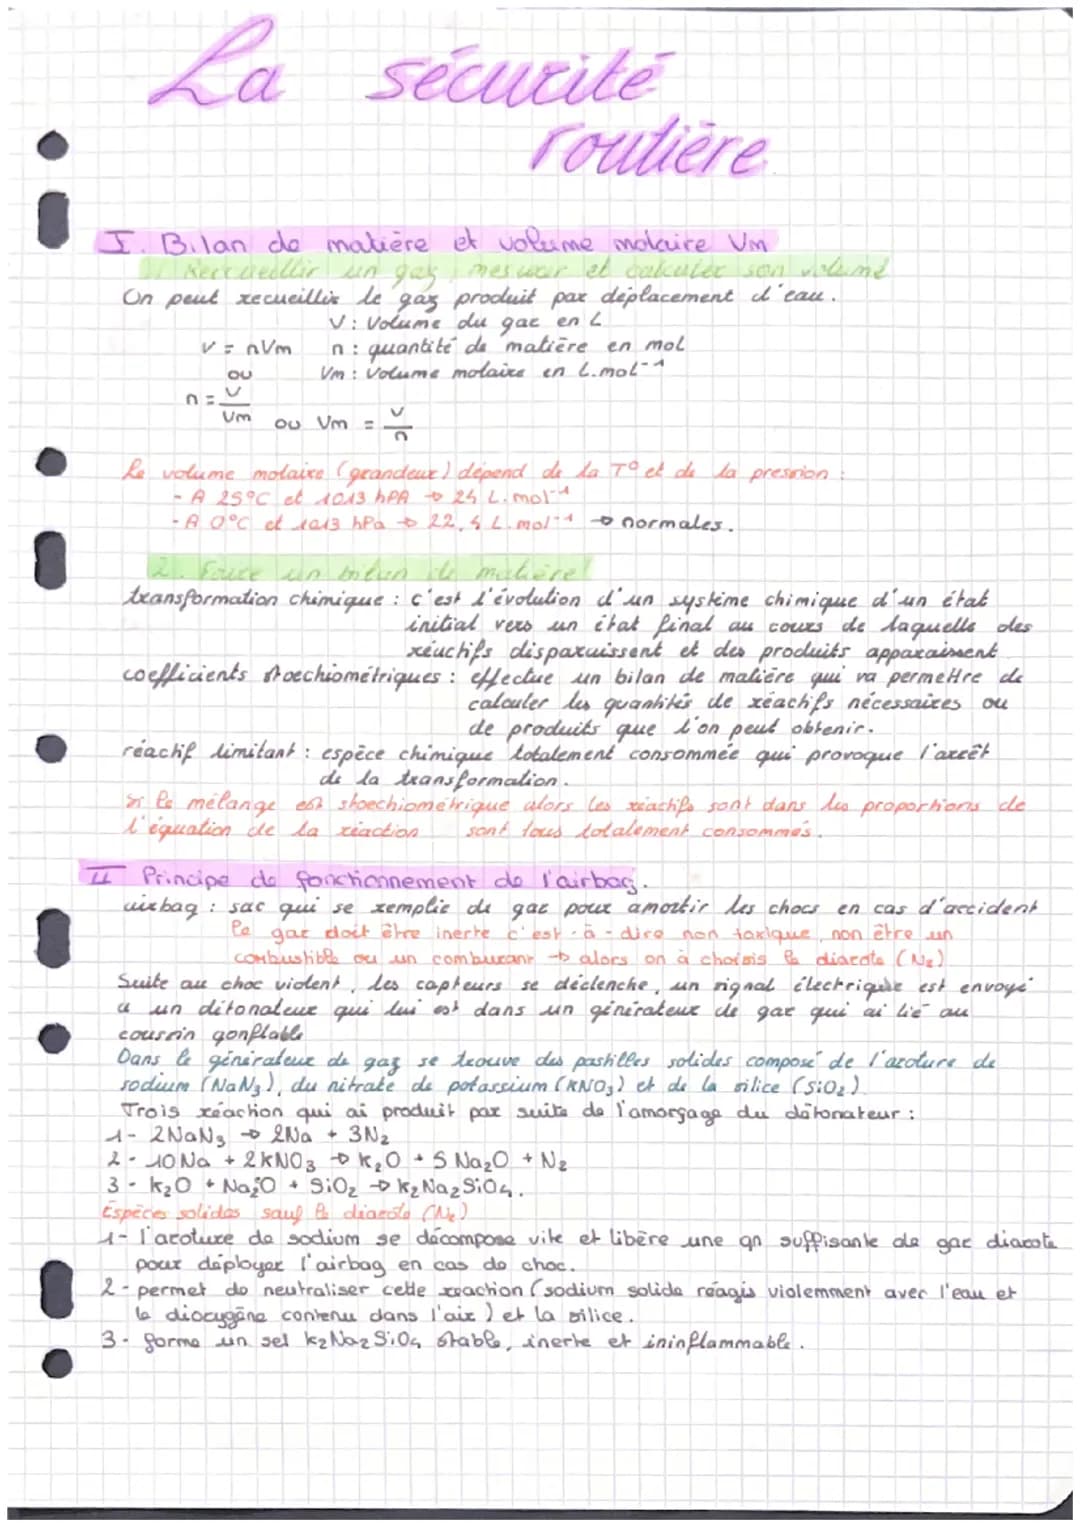 La sécurité
routière
I. Bilan de matière et volume molaire Vm
Recceuillir un gaz, mesurer et calculer son volume
On peut recueillir le gaz produit par déplacement d'eau.
V : Volume du gaz en L
V = nVm n : quantité de matière en mol
ou Vm : Volume molaire en L.mol⁻¹
n = V/Vm ou Vm = V/n
Le volume molaire (grandeur) dépend de la T° et de la pression :
- A 25°C et 1013 hPA → 24 L.mol⁻¹
- A 0°C et 1013 hPa → 22,4 L.mol⁻¹ → normales.
2. Faire un bilan de matière
transformation chimique : c'est l'évolution d'un système chimique d'un état
initial vers un état final au cours de laquelle des
réactifs disparaissent et des produits apparaissent
coefficients stoechiométriques : effectue un bilan de matière qui va permettre de
calculer les quantités de réactifs nécessaires ou
de produits que l'on peut obtenir.
réactif limitant : espèce chimique totalement consommée qui provoque l'arrêt
de la transformation.
si le mélange est stoechiométrique alors les réactifs sont dans les proportions de
l'équation de la réaction sont tous totalement consommés.
II Principe de fonctionnement de l'airbag.
airbag : sac qui se remplie de gaz pour amortir les chocs en cas d'accident
le gaz doit être inerte c'est-à-dire non toxique, non être un
combustible ou un comburant → alors on à choisis le diazote (N₂)
Suite au choc violent, les capteurs se déclenche, un signal électrique est envoyé
a un détonateur qui lui est dans un générateur de gaz qui ai lié au
coussin gonflable
Dans le générateur de gaz se trouve des pastilles solides composé de l'azoture de
sodium (NaN₃), du nitrate de potassium (KNO₃) et de la silice (SiO₂)
Trois réaction qui ai produit par suite de l'amorçage du détonateur :
1- 2NaN₃ → 2Na + 3N₂
2- 10Na + 2KNO₃ → K₂O + 5Na₂O + N₂
3- K₂O + Na₂O + SiO₂ → K₂Na₂SiO₄.
Espèces solides sauf le diazote (N₂)
1- l'azoture de sodium se décompose vite et libère une qn suffisante de gaz diazote
pour déployer l'airbag en cas de choc.
2- permet de neutraliser cette reaction (sodium solide réagis violemment avec l'eau et
le dioxygène contenu dans l'air) et la silice.
3- forme un sel K₂Na₂SiO₄ stable, inerte et ininflammable.